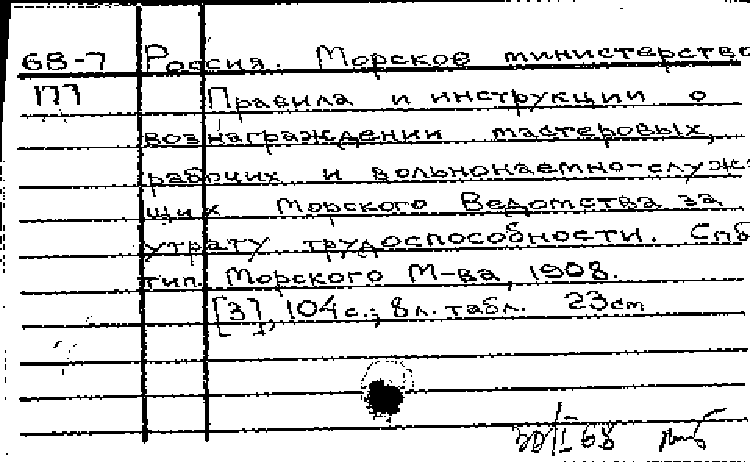 68-7 Россия. Морское министерство
177 Правила и инструкции о
вознаграждении мастеровых,
рабочих и вольнонаемно-служа
щих Морского Ведомства за
утрату трудоспособности. Спб
тип. Морского М-ва, 1908.
[3], 104 с.; 8 л. табл. 23cm
30/I 68